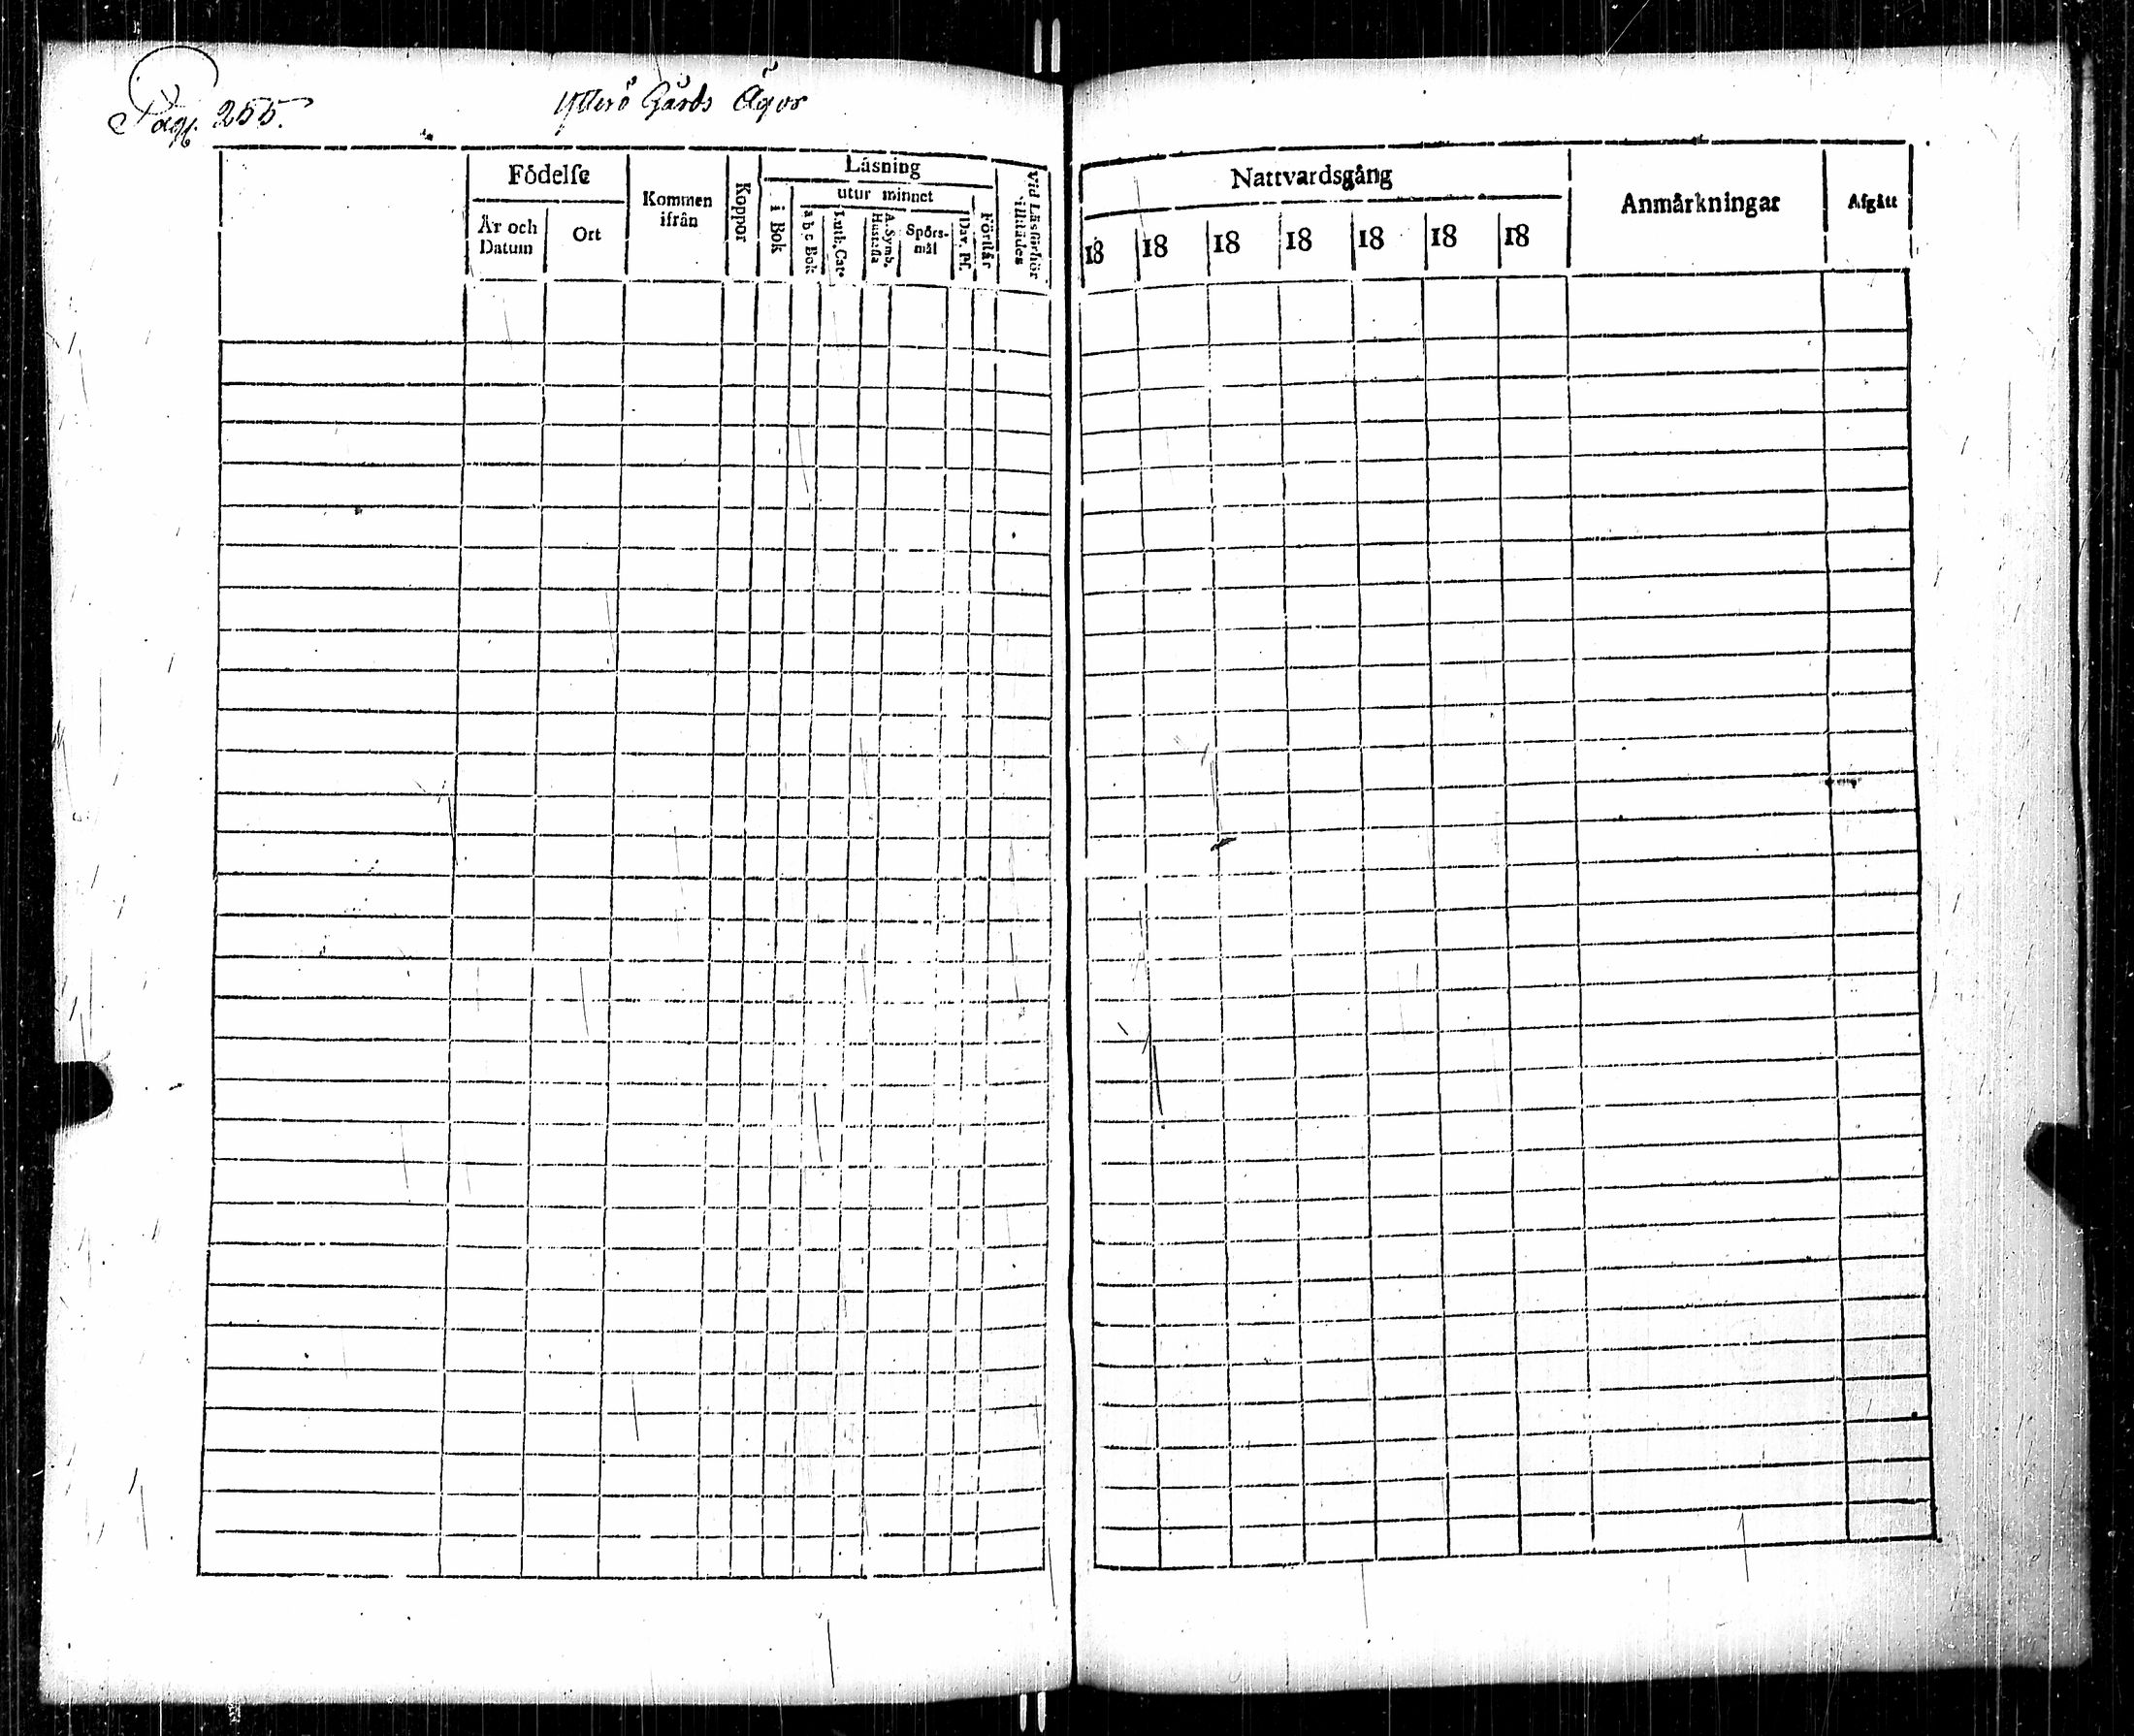 Pag. 255.
Ytterö Gårds Ägor
Födelſe
År och Datum
Ort
Kommen ifrån
Koppor
Läsning
i Bok
utur minnet
a b c Bok
Luth. Cat.
A. Symb. Hustafla
Spörs-
mål
Dav. Pſ.
Förſtår
Vid Läsförhör tillſtädes
Nattvardsgång
18 18 18 18 18 18 18
Anmärkningar
Afgått